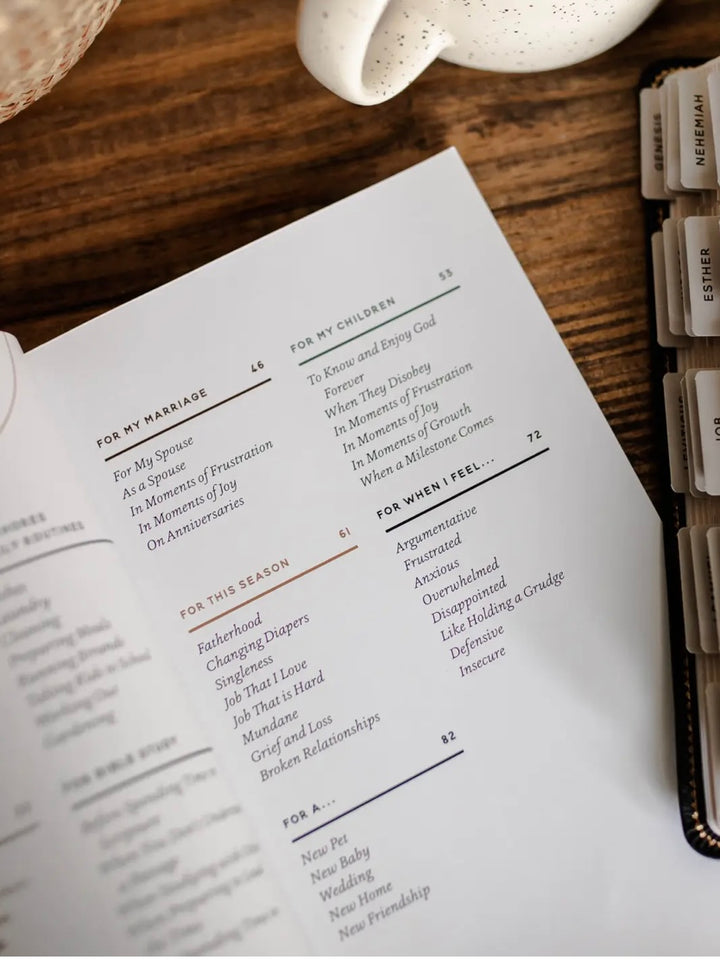 FOR MY MARRIAGE 46
For My Spouse
As a Spouse
In Moments of Frustration
In Moments of Joy
On Anniversaries
FOR THIS SEASON 61
Fatherhood
Changing Diapers
Singleness
Job That I Love
Job That is Hard
Mundane
Grief and Loss
Broken Relationships
FOR A... 82
New Pet
New Baby
Wedding
New Home
New Friendship
FOR MY CHILDREN 53
To Know and Enjoy God
Forever
When They Disobey
In Moments of Frustration
In Moments of Joy
In Moments of Growth
When a Milestone Comes
FOR WHEN I FEEL... 72
Argumentative
Frustrated
Anxious
Overwhelmed
Disappointed
Like Holding a Grudge
Defensive
Insecure
FOR BIBLE STUDY
GENESIS
NEHEMIAH
ESTHER
LEVITICUS
JOB